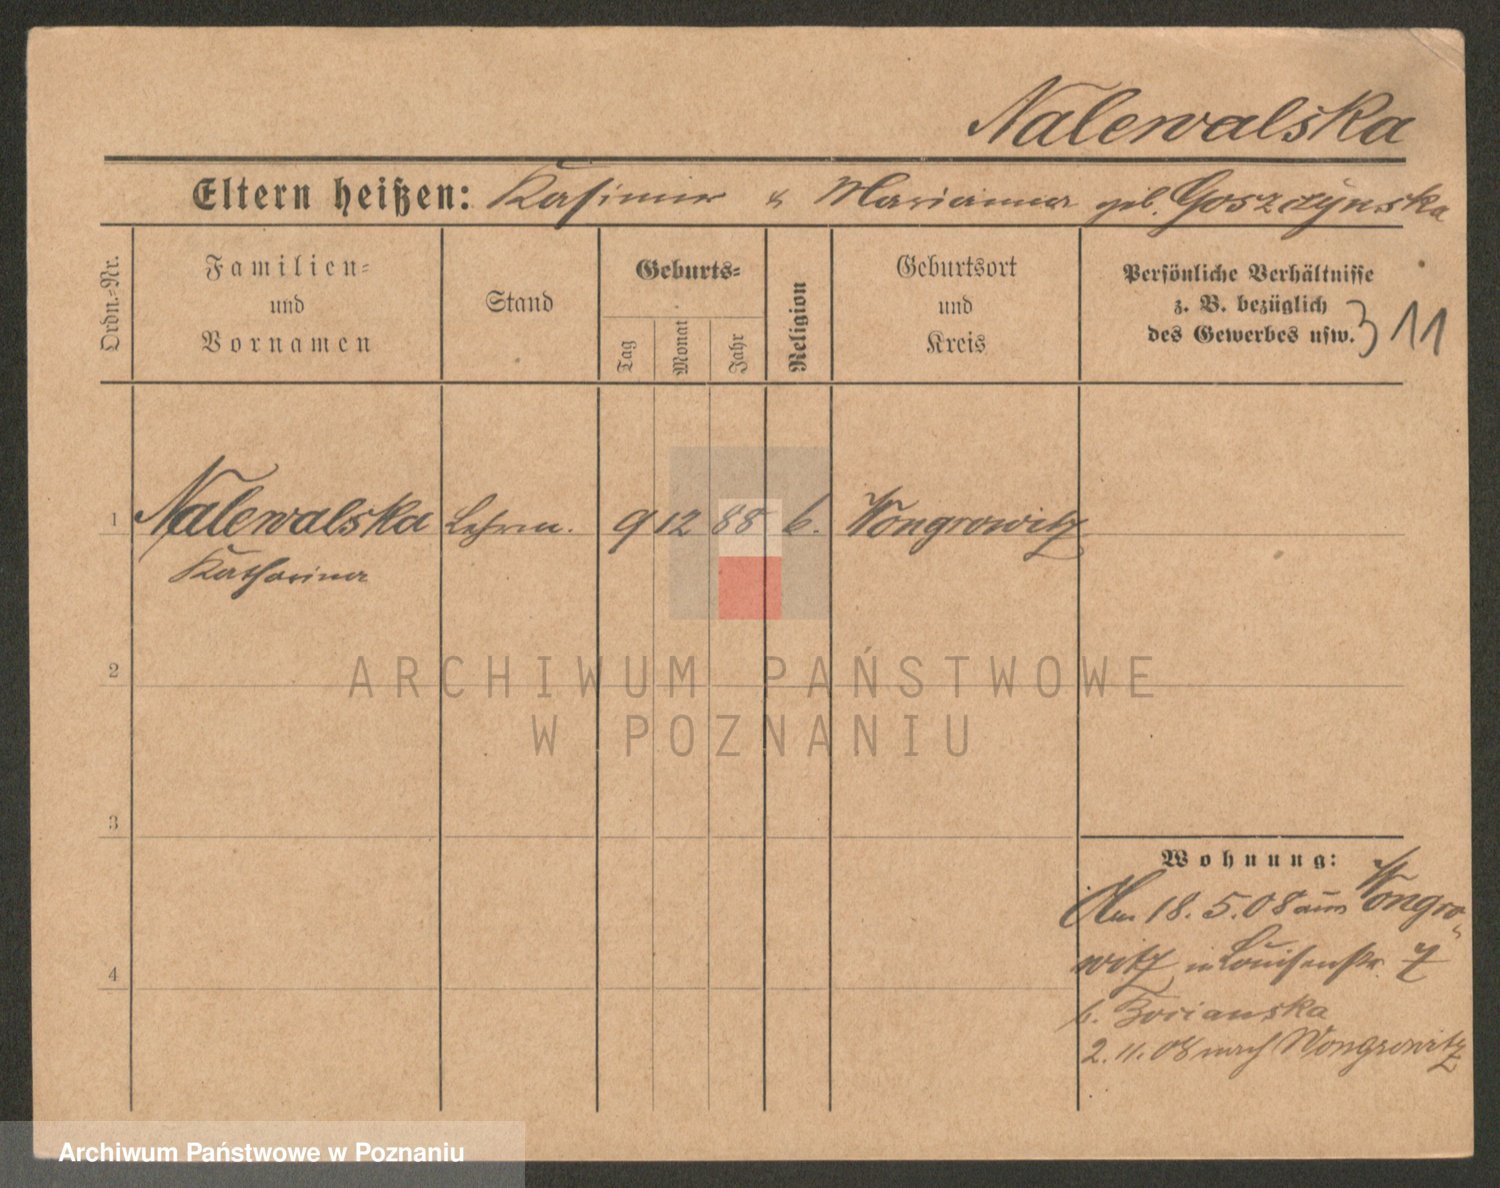 Nalewalska
Eltern heißen: Kasimir & Marianna geb. Goszczynska
Ordn.-Nr.
Familien-
und
Vornamen
Stand
Geburts-
Tag
Monat
Jahr
Religion
Geburtsort
und
Kreis
Persönliche Verhältnisse
z. B. bezüglich
des Gewerbes usw.
311
1 Nalewalska Lehrin. 9 12 88 k. Wongrowitz
Katharina
2
3
4
ARCHIWUM PAŃSTWOWE
W POZNANIU
Wohnung:
Am 18. 5. 08 aus Wongro-
witz in Louisenstr. 7
b. Bocianska
2. 11. 08 nach Wongrowitz
Archiwum Państwowe w Poznaniu